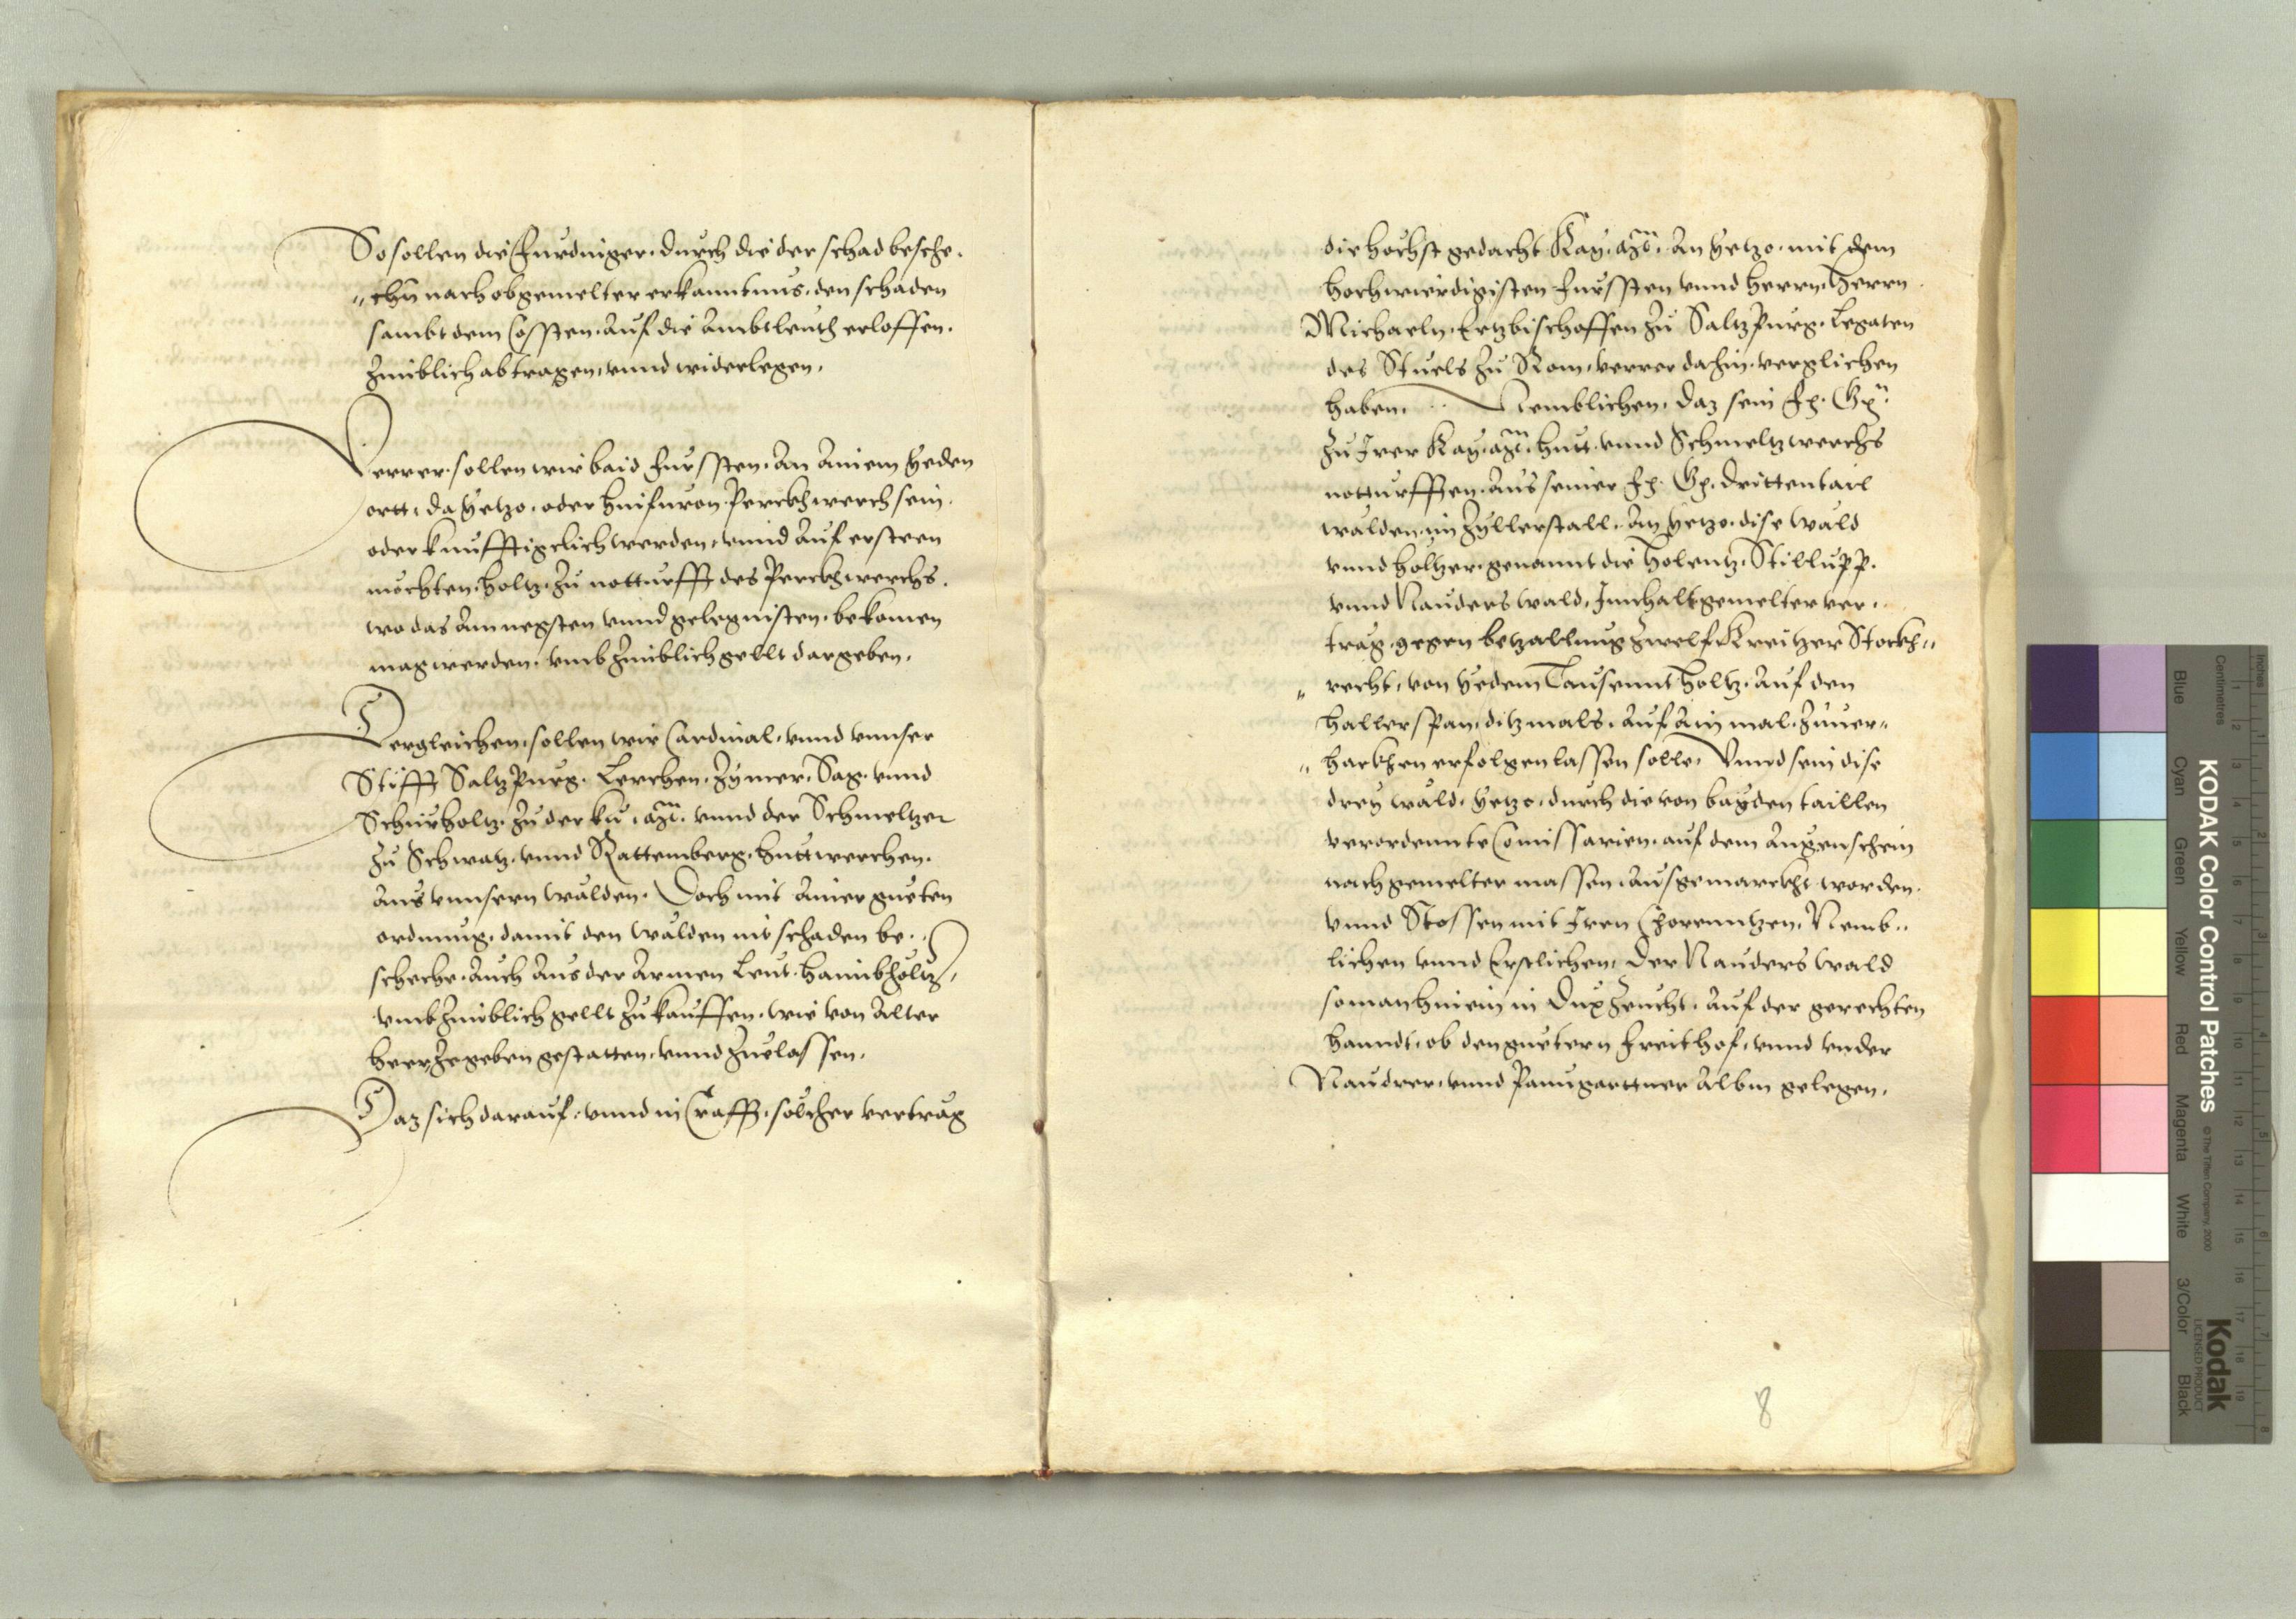 So sollen die Jhurdinger, durch die der schad besche,
„ chn nach obgemelter erkanntnus, den schaden
sambt dem Cossten, Auf die Ambtleuth erloffen,
Zimblich abtragen, vnnd widerlegen,
Verrer sollen wir baid Fürssten, An Ainem yeden
ortt, da yetzo, oder hinfuron Perckhwerch sein,
oder kunfftigclich werden, vnnd Auf ersteen
möchten, holtz, zu notturfft des Perckhwerchs,
wo das Am negsten vnnd gelegnisten, bekomen
mag werden, vmb Zimblich gellt dargeben,
Dergleichen, sollen wir Cardinal, vnnd vnnser
Stifft Saltzpurg, Lerchen, Zymer, Sag, vnnd
Schürholtz, zu der ku. Mt. vnnd der Schmeltzer
zu Schwatz, vnnd Rattemberg, huttwerchen,
Aus vnnsern wälden, Doch mit Ainer gueten
ordnnug, damit den wälden nit schaden be,,
scheche, Auch Aus der Armen Leut, haimbhöltz,
vmb Zimblich gellt zu kauffen, wie von Alter
heer Zegeben gestatten, vnnd Zuelassen,
Daz sich darauf, vnnd in Crafft, solcher vertrag
die höchst gedacht Kay. Mt. An yetzo, mit dem
hochwierdigisten Fürssten vnnd herrn, Herrn
Michaeln, Ertzbischoffen zu Saltzpurg, Legaten
des Stuels zu Rom, verrer dahin, verglichen
haben, Nemblichen, daz sein Fr. Gn.
zu Irer Kay. Mt. hutt, vnnd Schmeltzwerchs
notturfften, Aus seiner Fr. Gn. dritten tail
wälden, im Zyllerstall, An yetzo, dise Wäld
vnnd höltzer, genannt die Holentz, Stillupp,
vnnd Nauders Wald, Innhalt gemelter ver,,
trag, gegen betzallnug Zwelf Kreitzer Stockh,,
„ recht, von yedem Tausennt holtz, Auf den
haller span, ditzmals, Auf Ain mal, Zuuer,,
„ harkhen erfolgen lassen solle, Vnnd sein dise
drey wäld, yetzo, durch die von bayden taillen
verordennte Comissarien, auf dem Augenschein
nachgemelter massen, Ausgemarckht worden,
vnnd Stossen mit Iren Chorenntzen, Nemb,,
lichen vnnd Erstlichen, Der Nauders Wald
so man hinein in Dux Zeucht, Auf der gerechten
hanndt, ob den guetern Freithof, vnnd vnder
Naudrer, vnnd Pamgarttner Albm gelegen,
8
KODAK Color Control Patches
© The Tiffen Company, 2000
Kodak
LICENSED PRODUCT
Inches
Centimetres
Blue
Cyan
Green
Yellow
Red
Magenta
White
3/Color
Black